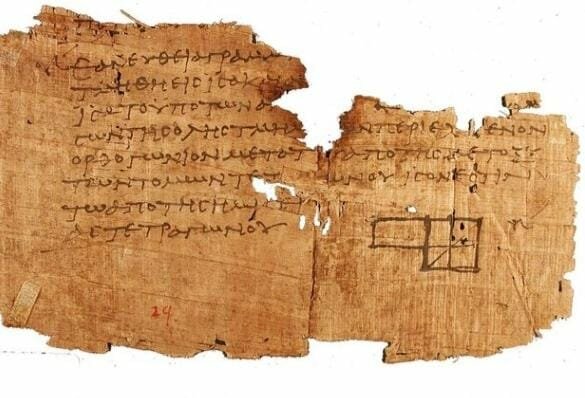 ΕΑΝΕΥΘΕΙΑΓΡΑΜ
ΤΜΗΘΗΕΙΣΙΣΑΚΑΙΑ
ΙΣΑΤΟΥΠΟΤΩΝΑ
ΣΩΝΤΗΣΟΛΗΣΤΜΗ ΩΝΠΕΡΙΕΧΟΜΕΝΟΝ
ΟΡΘΟΓΩΝΙΟΝΜΕΤΟΤ ΑΠΟΤΗΣΜΕΤΟΞΥ
ΤΩΝΤΟΜΩΝΤΕΤ ΩΝΟΥΙΣΟΝΕΣΤΙΝ
ΤΩΑΠΟΤΗΣΗΜΙΣΕΙ
ΑΣΤΕΤΡΑΓΩΝΟΥ
29